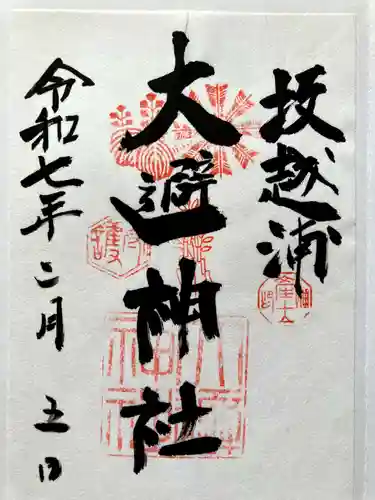 坂越浦
大避神社
令和七年二月五日